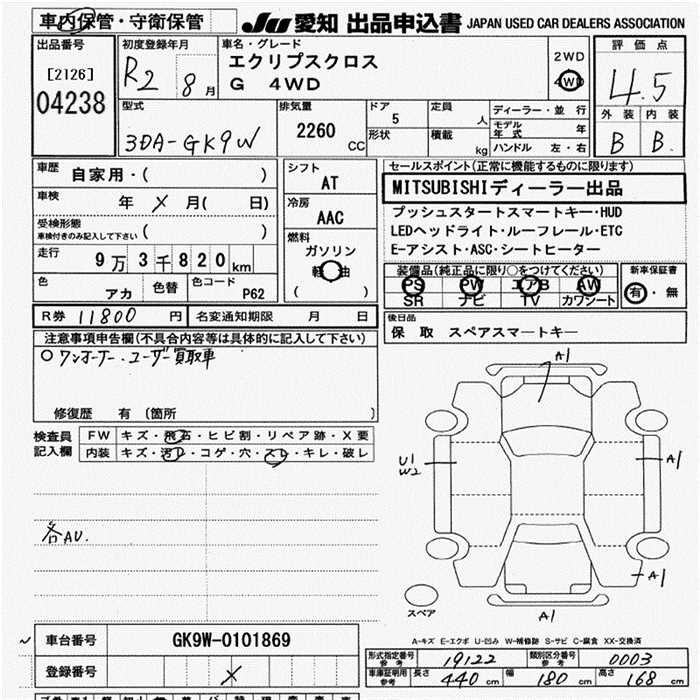 車内保管・守衛保管 JU 愛知 出品申込書 JAPAN USED CAR DEALERS ASSOCIATION
出品番号
[2126]
04238
初度登録年月
R2 8月
車名・グレード
エクリプスクロス
G 4WD
2WD
4WD
評価点
4.5
外装 内装
B B.
型式
3DA-GK9W
排気量
2260 CC
ドア
5
形状
定員
人
積載
kg
ディーラー・並行
モデル年式 年
ハンドル 左・右
車歴
自家用・( )
車検
年 X 月( 日)
受検形態
車検付きのみ記入して下さい ( )
走行
9万3千820km
色
アカ
色替
色コード
P62
シフト
AT
冷房
AAC
燃料
ガソリン
軽油
( )
セールスポイント(正常に機能するものに限ります)
MITSUBISHIディーラー出品
プッシュスタートスマートキー・HUD
LEDヘッドライト・ルーフレール・ETC
E-アシスト・ASC・シートヒーター
装備品(純正品に限り○をつけてください)
PS PW エアB AW
SR ナビ TV カワシート
新車保証書
有・無
R券 11800 円 名変通知期限 月 日
後日品
保 取 スペアスマートキー
注意事項申告欄(不具合内容等は具体的に記入して下さい)
○ワンオーナー・ユーザー買取車
修復歴 有 (箇所 )
検査員記入欄
FW キズ・飛石・ヒビ割・リペア跡・X要
内装 キズ・汚レ・コゲ・穴・スレ・キレ・破レ
各AU.
A1
U1
W2
A1
A1
スペア
A1
A-キズ E-エクボ U-凹み W-補修跡 S-サビ C-腐食 XX-交換済
車台番号 GK9W-0101869
登録番号 X
形式指定番号 参考 19122 類別区分番号 参考 0003
車庫証明用 参考 長さ 440 cm 幅 180 cm 高さ 168 cm